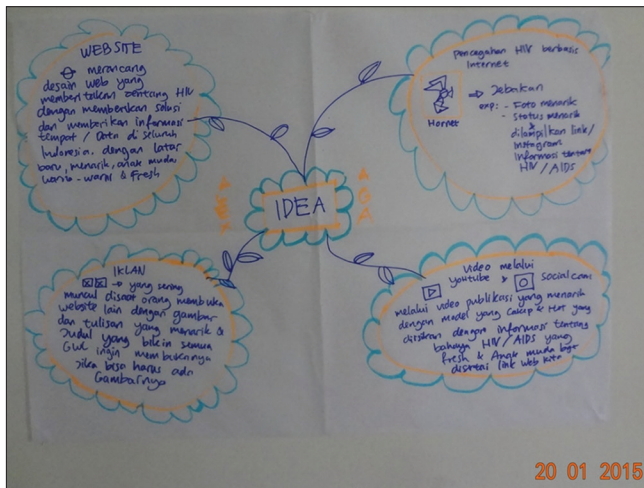 WEBSITE
merancang
desain web yang
memberitakan tentang HIV
dengan memberikan solusi
dan memberikan informasi
tempat / Data di seluruh
Indonesia. dengan latar
baru, menarik, anak muda
warna-warni & Fresh
pencegahan HIV berbasis
Internet
Hornet
Jebakan
exp: - Foto menarik
- Status menarik
&
dilampirkan link/
Instagram
Informasi tentang
HIV / AIDS
IDEA
AGA
IKLAN
yang sering
muncul disaat orang membuka
website lain dengan gambar
dan tulisan yang menarik &
Judul yang bikin semua
GWL ingin membukanya
jika bisa harus ada
Gambarnya
Video melalui
youtube &
social cam
melalui video publikasi yang menarik
dengan model yang cakep & Hot yang
disisikan dengan informasi tentang
bahaya HIV/AIDS yang
fresh & Anak muda bgt
disertai link web kita
20 01 2015